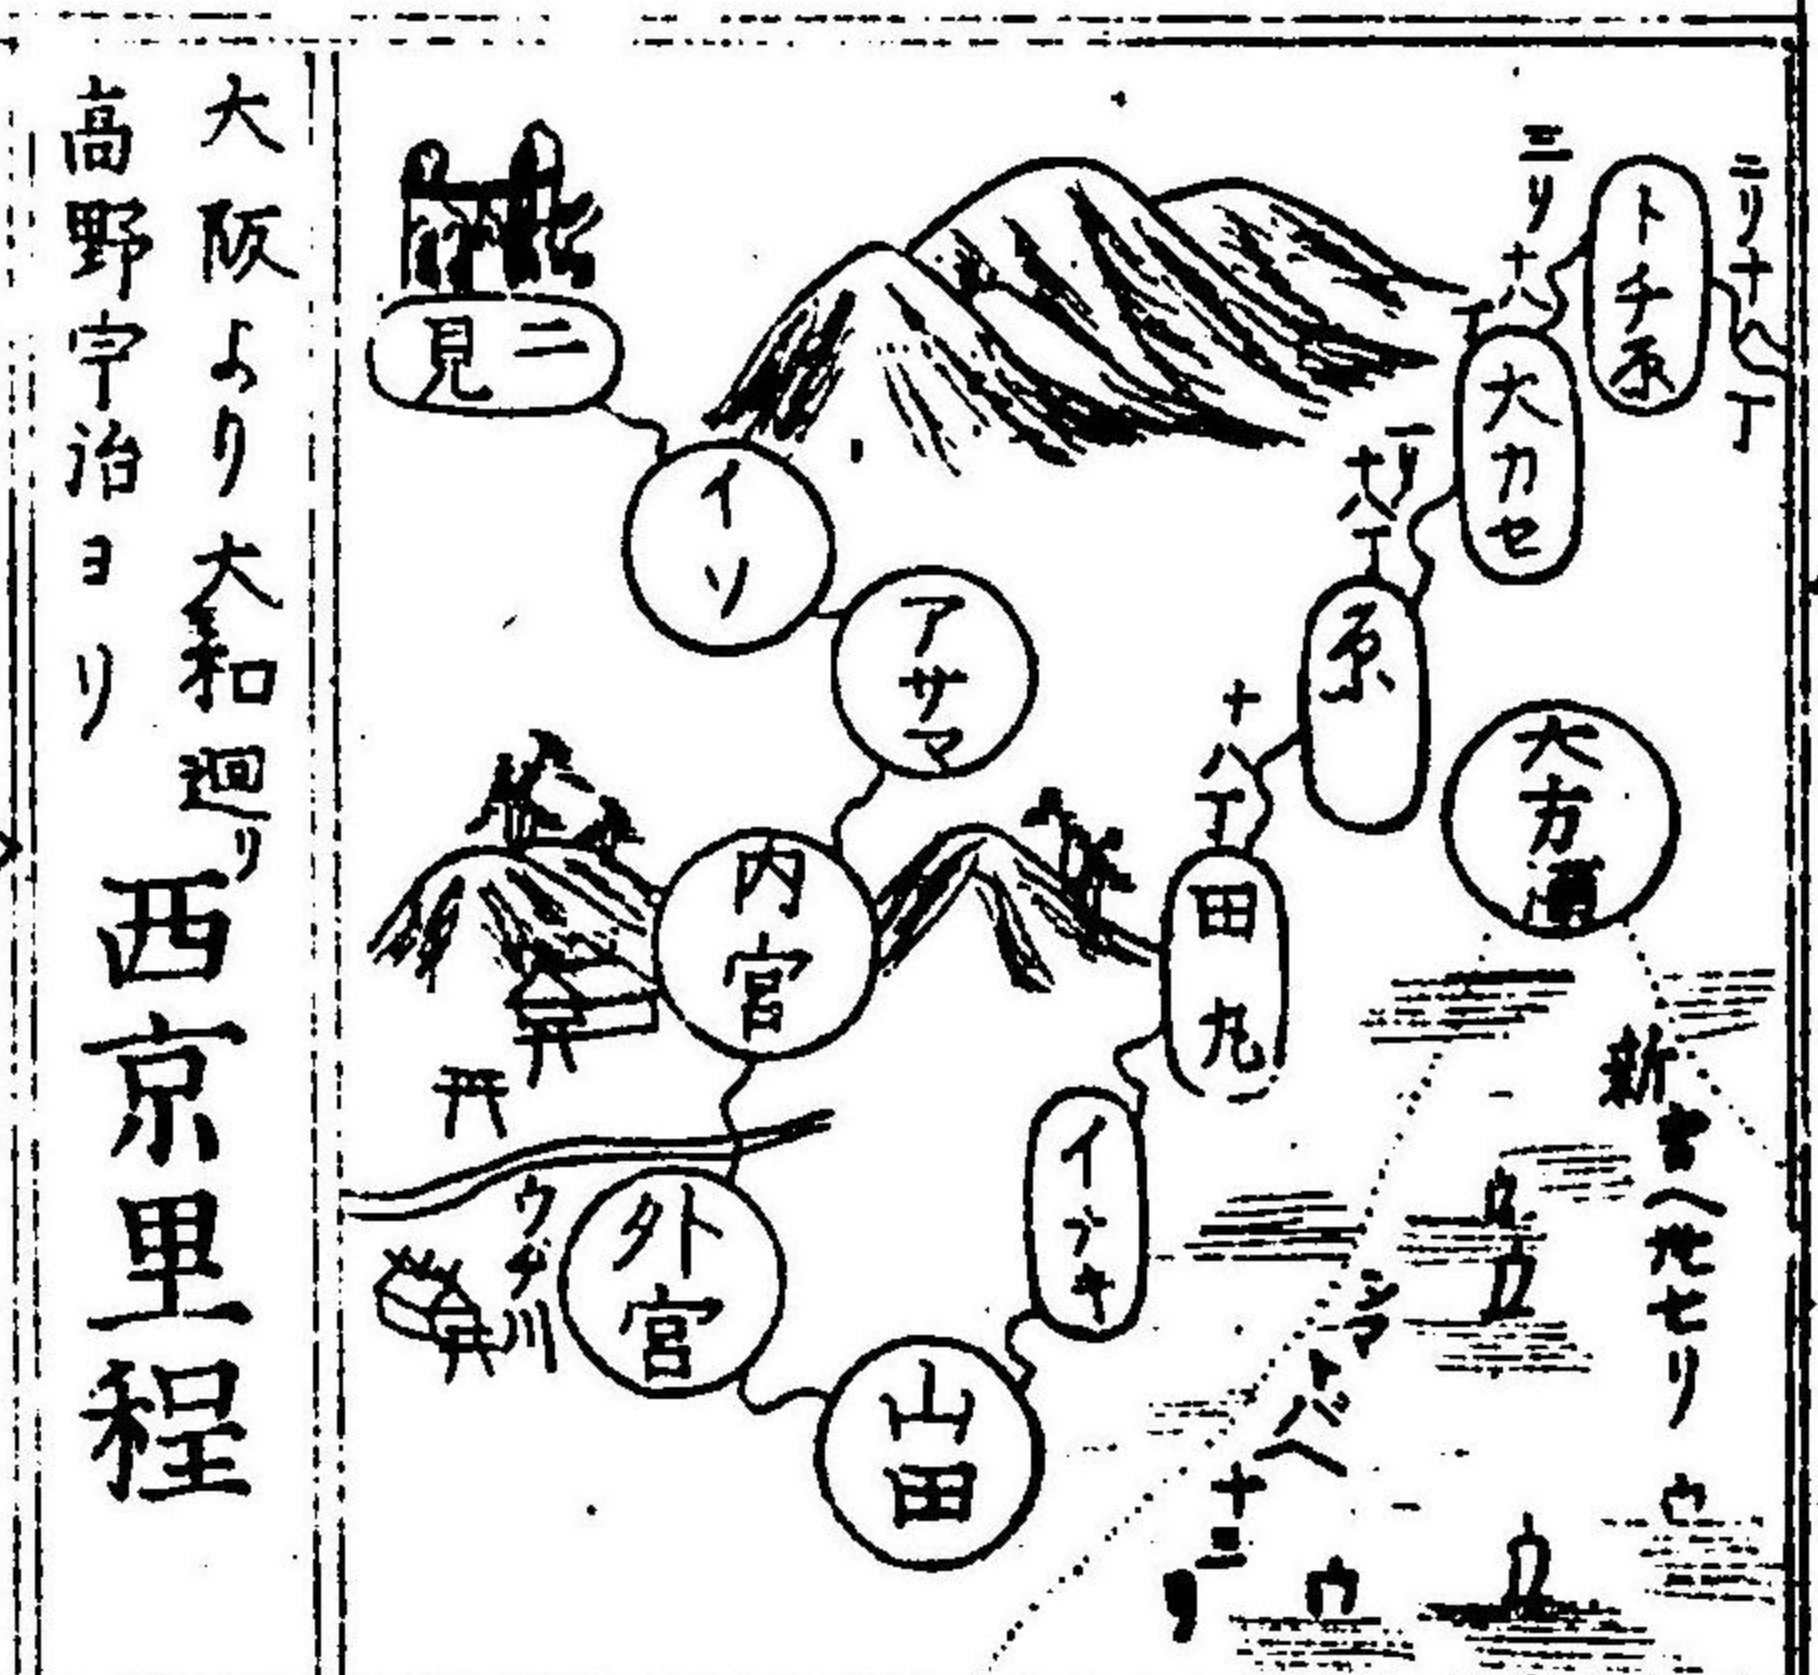 二リ十八丁
トチ原
三リ十八丁
大カセ
一リ十八丁
原
十八丁
田丸
イナキ
山田
外宮
ウヂ川
内宮
アサマ
イソ
二見
大方
新宮へ
七リ
シマトバヘ十三リ
大阪より大和廻り
高野宇治ヨリ
西京里程